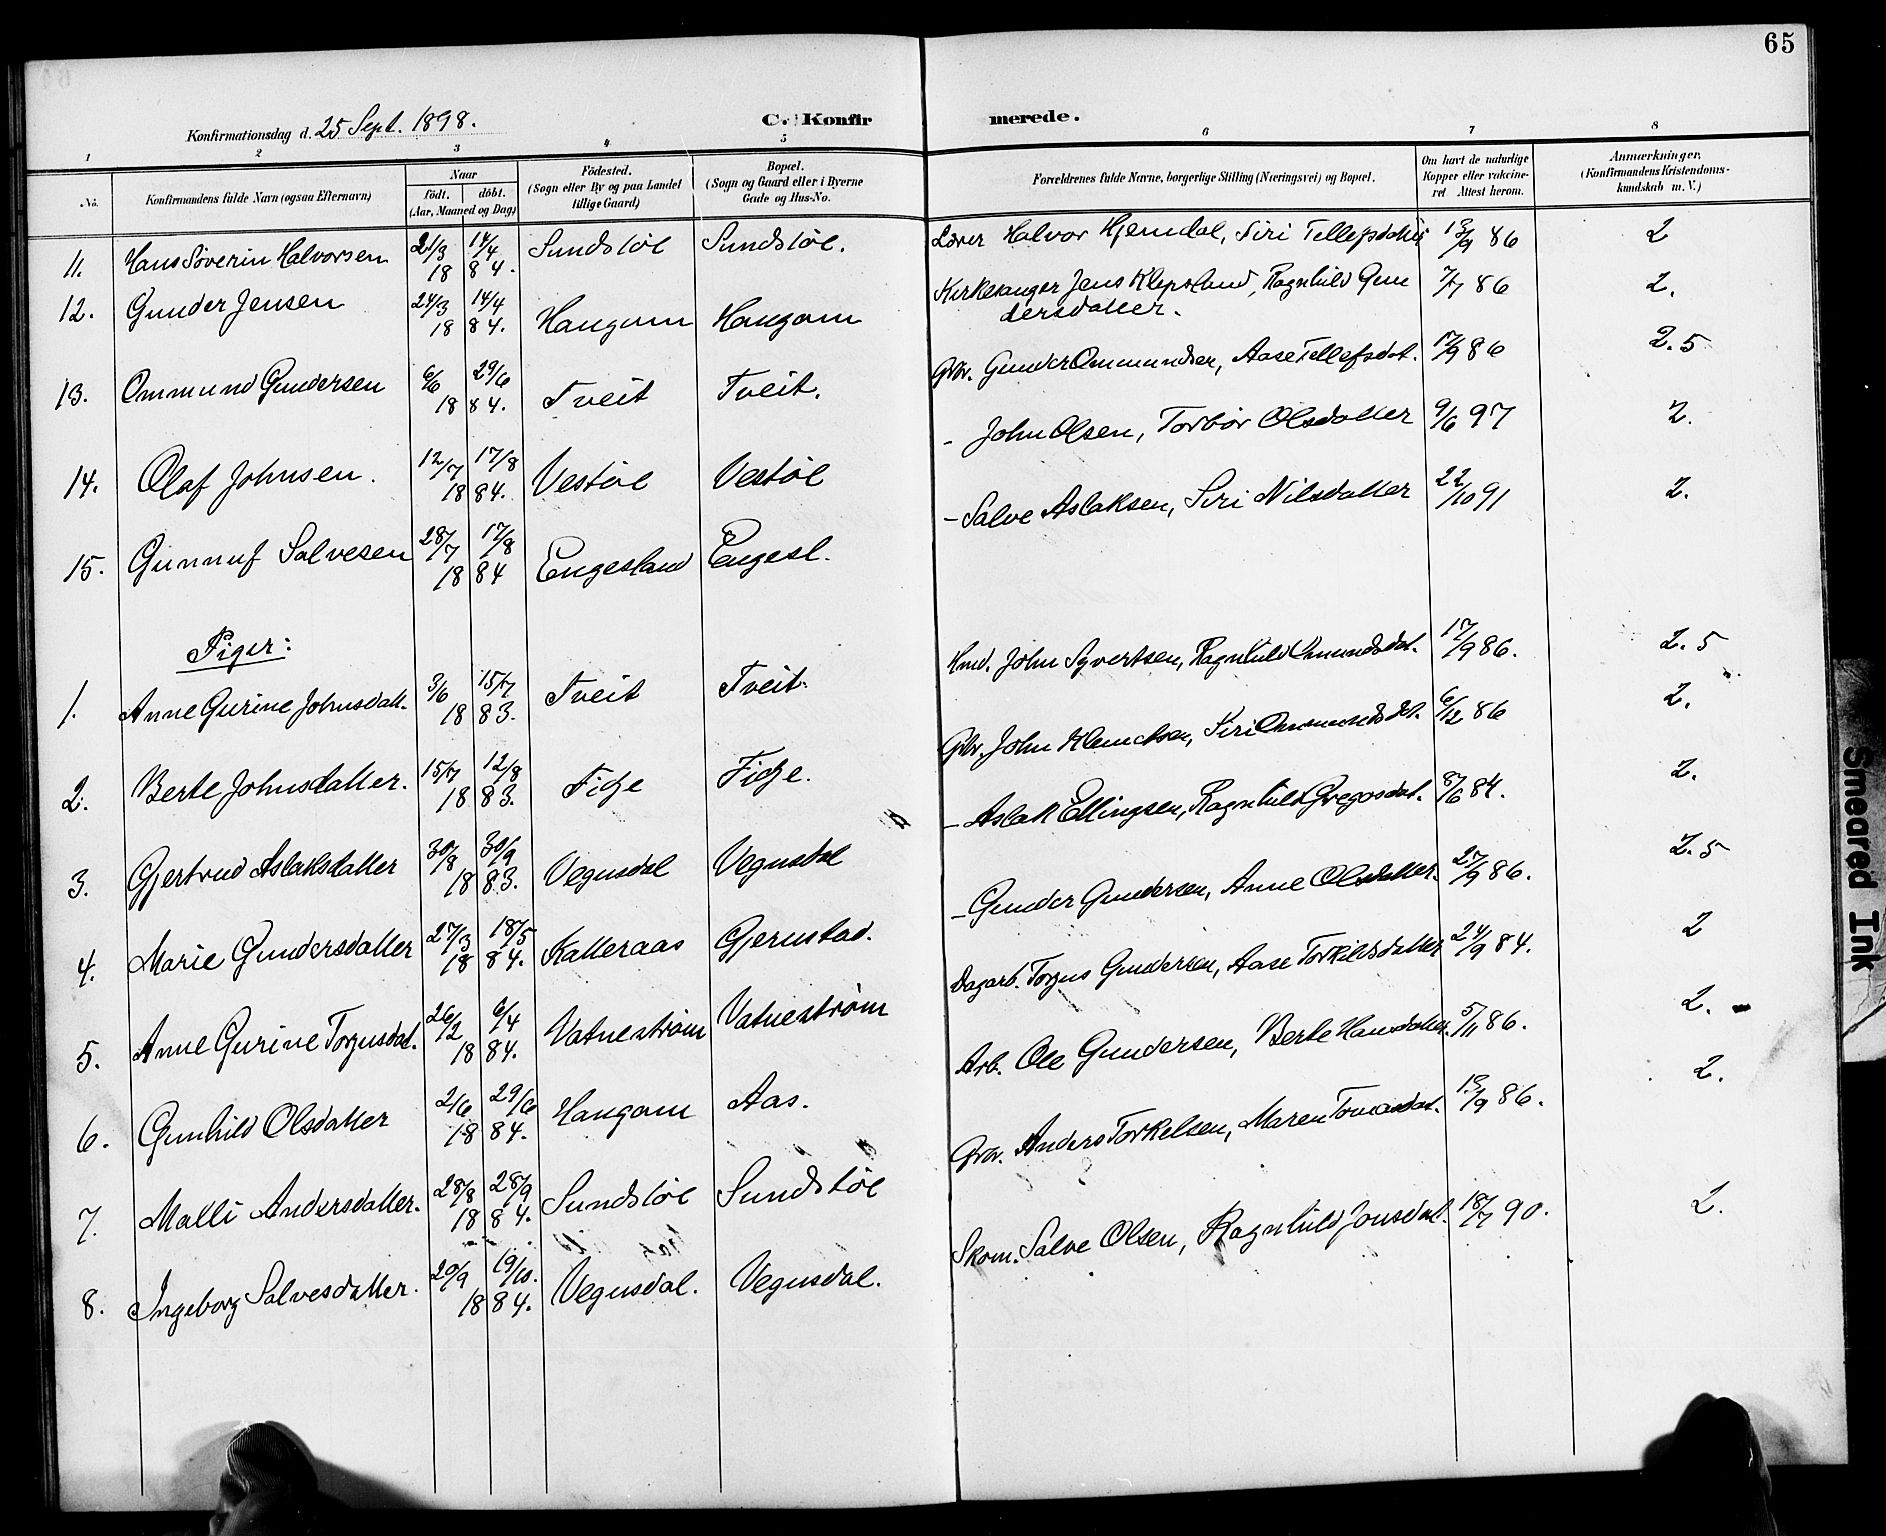 65
Konfirmationsdag d. 25 Sept. 1898.
C. Konfirmerede.
1 2 3 4 5 6 7 8
No.
Konfirmandens fulde Navn (ogsaa Efternavn)
Naar
født. døbt.
(Aar, Maaned og Dag)
Födested.
(Sogn eller By og paa Landet
tillige Gaard)
Bopæl.
(Sogn og Gaard eller i Byerne
Gade og Hus-No.
Forældrenes fulde Navne, borgerlige Stilling (Næringsvei) og Bopæl.
Om havt de naturlige
Kopper eller vakcine-
ret Attest herom.
Anmærkninger.
(Konfirmandens Kristendoms-
kundskab m. V.)
11. Hans Söverin Halvorsen 21/3 14/4 1884. Sundstöl Sundstöl. Lærer Halvor Hjemdal, Siri Tellefsdatter 13/9 86 2
12. Gunder Jensen 24/3 14/4 1884. Haugom Haugom Kirkesanger Jens Klepsland, Ragnhild Gun
dersdatter. 7/7 86 2.
13. Ommund Gundersen 6/6 29/6 1884. Tveit Tveit. Gbr. Gunder Ommundsen, Aase Tellefsdat. 17/9 86 2.5
14. Olaf Johnsen. 12/7 17/8 1884. Vestöl Vestöl - John Olsen, Torbör Olsdatter 9/6 97 2.
15. Gunnuf Salvesen 28/7 17/8 1884 Engesland Engesl. - Salve Aslaksen, Siri Nilsdatter 22/10 91 2.
Piger:
1. Anne Gurine Johnsdatt. 3/6 15/7 1883. Tveit Tveit. Hmd. John Syvertsen, Ragnhild Omundsdat. 17/9 86. 2.5
2. Berte Johnsdatter. 15/7 12/8 1883. Fidje Fidje. Gbr. John Klemetsen, Siri Ommundsdat. 6/12 86 2.
3. Gjertrud Aslaksdatter 30/8 30/9 1883. Vegusdal Vegusdal - Aslak Ellingsen, Ragnhild Gregosdat. 8/6 84. 2.
4. Marie Gundersdatter 27/3 18/5 1884. Kalleraas Gjerustad. - Gunder Gundersen, Anne Olsdatter. 27/9 86. 2.5
5. Anne Gurine Torjusdat. 26/2 6/4 1884. Vatneström Vatneström Dagarb. Torjus Gundersen, Aase Torkildsdatter 24/9 84. 2
6. Gunhild Olsdatter 2/6 29/6 1884. Haugom Aas. Arb. Ole Gundersen, Berte Hansdatter. 5/11 86. 2.
7. Malli Andersdatter. 28/8 28/9 1884. Sundstöl Sundstöl Gbr. Anders Torkelsen, Maren Tomasdat. 13/9 86. 2.
8. Ingeborg Salvesdatter. 20/9 19/10. 1884. Vegusdal. Vegusdal. Skom. Salve Olsen, Ragnhild Jonsdat. 18/7 90. 2.
Smeared Ink